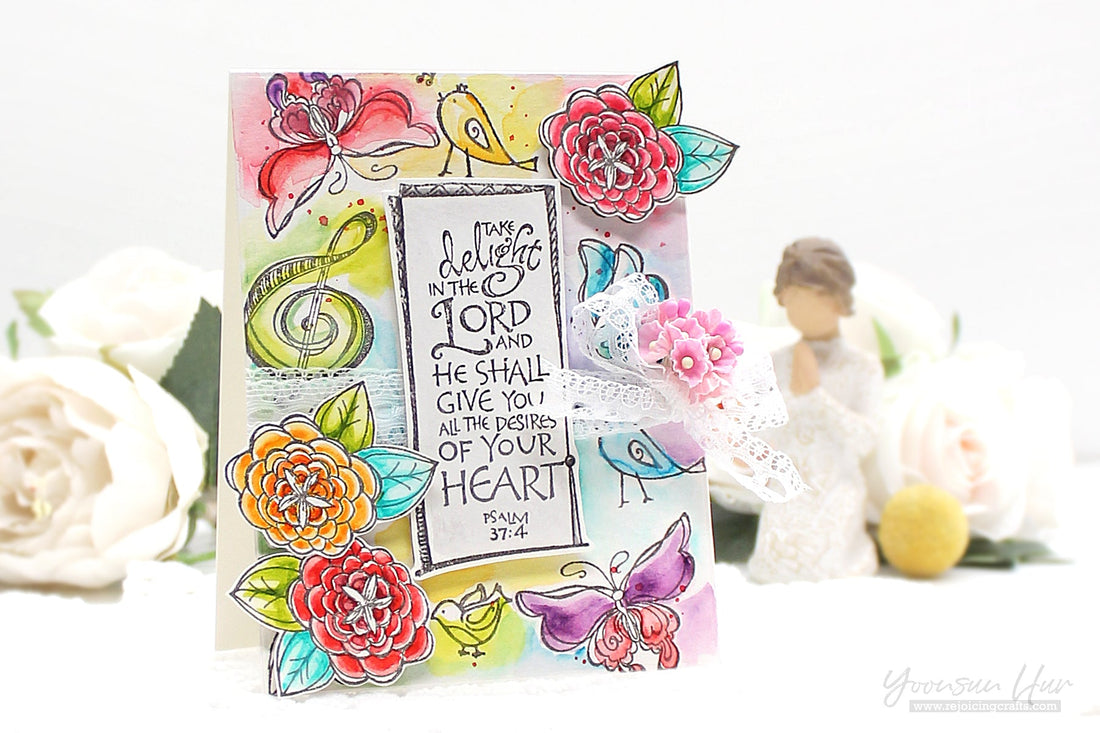 TAKE
delight
IN THE
LORD
AND
HE SHALL
GIVE YOU
ALL THE DESIRES
OF YOUR
HEART
PSALM
37:4
Yoonsun Hur
www.rejoicingcrafts.com